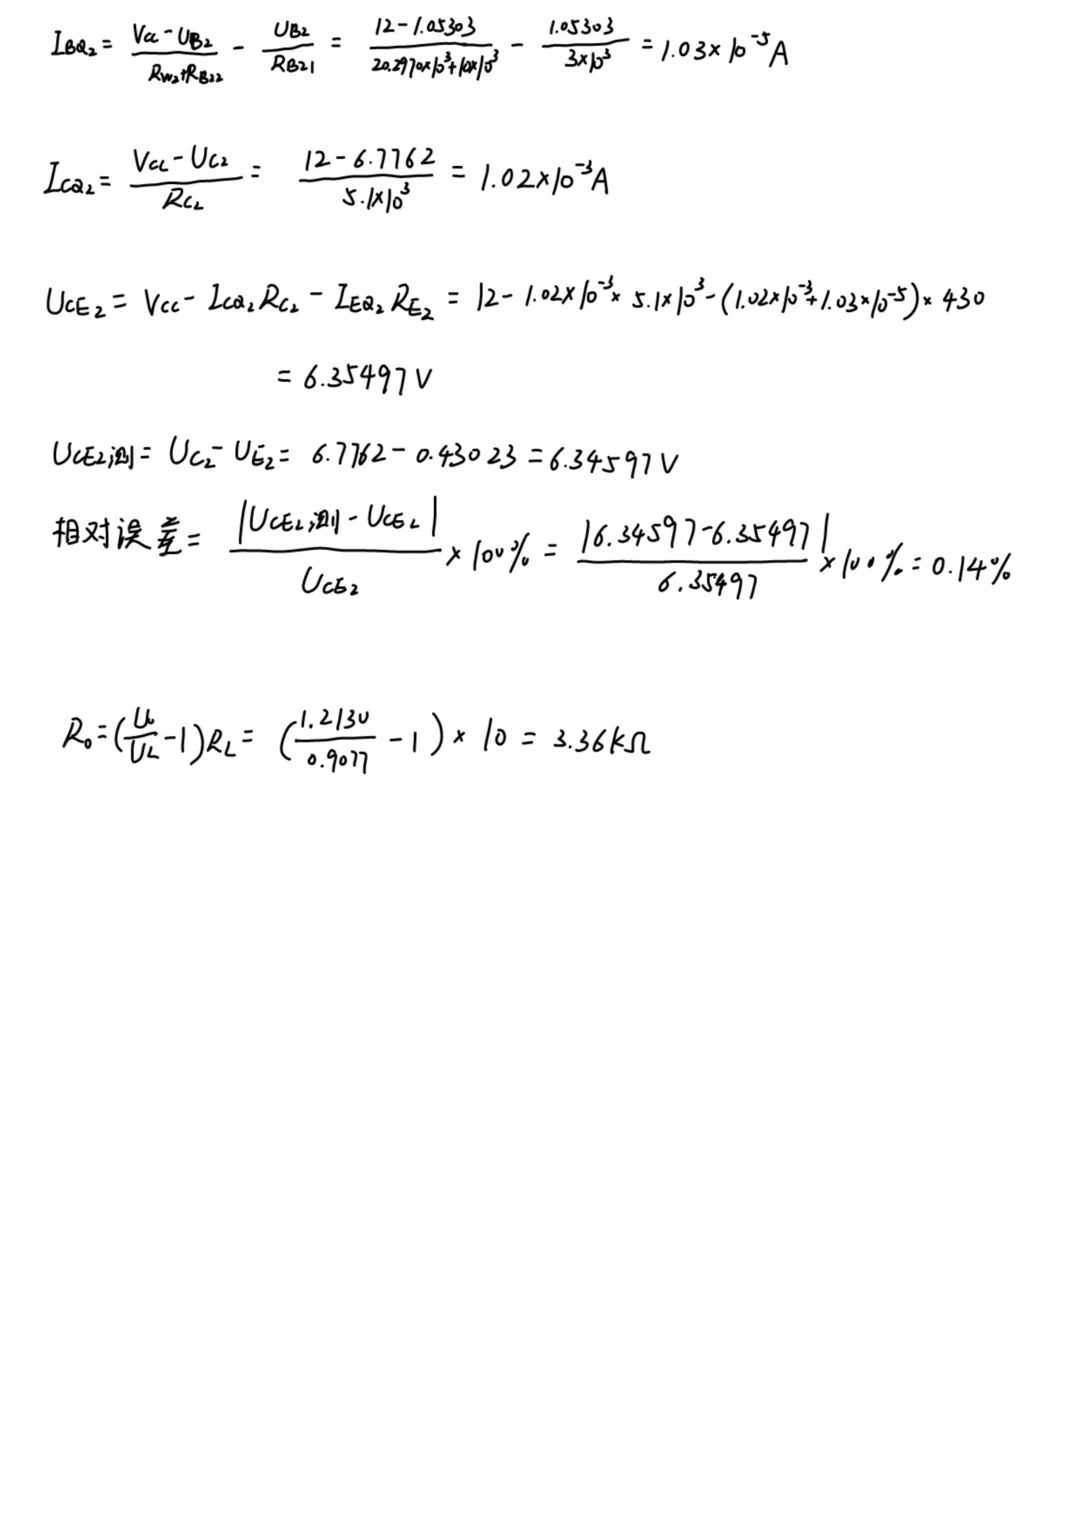 I_{BQ2} = \frac{V_{CC} - U_{B2}}{R_{W2} + R_{B22}} - \frac{U_{B2}}{R_{B21}} = \frac{12 - 1.05303}{20.2970×10^3 + 10×10^3} - \frac{1.05303}{3×10^3} = 1.03×10^{-5} A
I_{CQ2} = \frac{V_{CC} - U_{C2}}{R_{C2}} = \frac{12 - 6.7762}{5.1×10^3} = 1.02×10^{-3} A
U_{CE2} = V_{CC} - I_{CQ2} R_{C2} - I_{EQ2} R_{E2} = 12 - 1.02×10^{-3} × 5.1×10^3 - (1.02×10^{-3} + 1.03×10^{-5}) × 430
= 6.35497 V
U_{CE2测} = U_{C2} - U_{E2} = 6.7762 - 0.43023 = 6.34597 V
相对误差 = \frac{|U_{CE2测} - U_{CE2}|}{U_{CE2}} × 100% = \frac{|6.34597 - 6.35497|}{6.35497} × 100% = 0.14%
R_o = (\frac{U_o}{U_L} - 1) R_L = (\frac{1.2130}{0.9077} - 1) × 10 = 3.36 kΩ